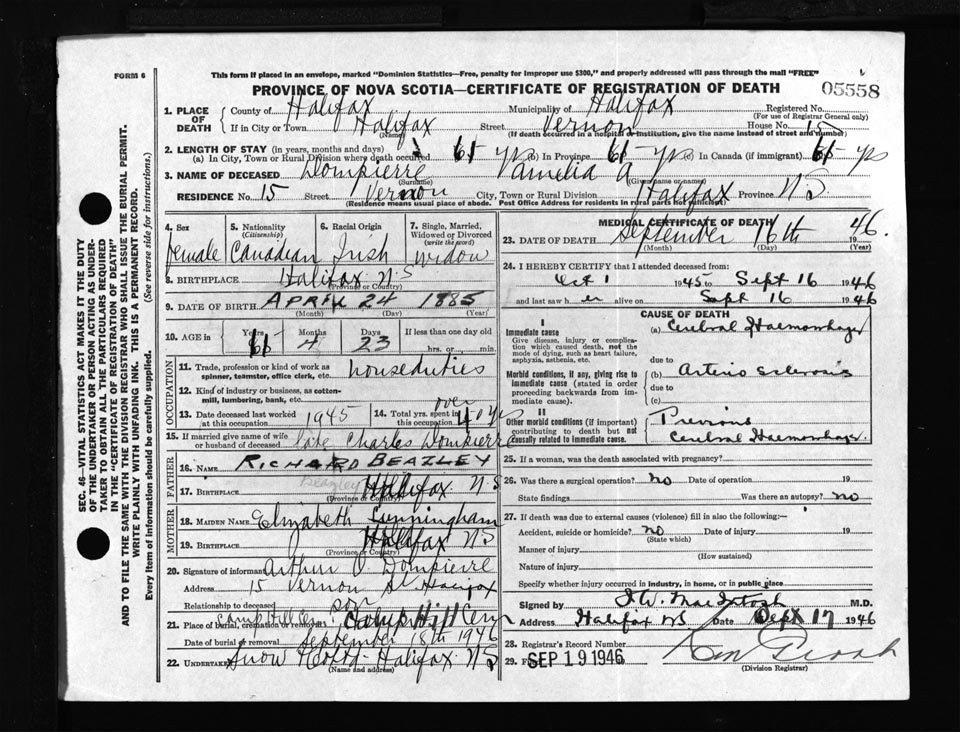 FORM 6
This form if placed in an envelope, marked "Dominion Statistics—Free, penalty for improper use $300," and properly addressed will pass through the mail "FREE"
PROVINCE OF NOVA SCOTIA—CERTIFICATE OF REGISTRATION OF DEATH
05558
1. PLACE OF DEATH
County of Halifax Municipality of Halifax Registered No.
(For use of Registrar General only)
If in City or Town Halifax Street Vernon House No. 15
(Name) (If death occurred in a hospital or institution, give the name instead of street and number)
2. LENGTH OF STAY (in years, months and days)
(a) In City, Town or Rural Division where death occurred 61 yrs (b) In Province 61 yrs (c) In Canada (if immigrant) 61 yrs
3. NAME OF DECEASED Dompierre Pamelia A
(Surname) (Given name or names)
RESIDENCE No. 15 Street Vernon City, Town or Rural Division Halifax Province N.S.
(Residence means usual place of abode. Post Office Address for residents in rural parts not sufficient)
4. Sex 5. Nationality (Citizenship) 6. Racial Origin 7. Single, Married, Widowed or Divorced (write the word)
female Canadian Irish widow
8. BIRTHPLACE Halifax N.S
(Province or Country)
9. DATE OF BIRTH APRIL 24 1885
(Month) (Day) (Year)
10. AGE in Years Months Days If less than one day old
61 4 23 hrs. or min.
OCCUPATION
11. Trade, profession or kind of work as spinner, teamster, office clerk, etc. houseduties
12. Kind of industry or business, as cotton-mill, lumbering, bank, etc.
13. Date deceased last worked at this occupation 1945 14. Total yrs. spent in this occupation over 40 yrs
15. If married give name of wife or husband of deceased late Charles Dompierre
FATHER
16. NAME RICHARD BEAZLEY
Beazley
17. BIRTHPLACE Halifax N.S
(Province or Country)
MOTHER
18. MAIDEN NAME Elizabeth Cunningham
19. BIRTHPLACE Halifax N.S
(Province or Country)
20. Signature of informant Arthur O. Dompierre
Address 15 Vernon St Halifax
Relationship to deceased son
21. Place of burial, cremation or removal Camp Hill Cem
Date of burial or removal September 18th 1946
22. UNDERTAKER Snow & Co Ltd Halifax N.S
(Name and address)
MEDICAL CERTIFICATE OF DEATH
23. DATE OF DEATH September 16th 1946.
(Month) (Day) (Year)
24. I HEREBY CERTIFY that I attended deceased from:
Oct 1 1945 to Sept 16 1946
and last saw h er alive on Sept 16 1946
CAUSE OF DEATH
I
Immediate cause
Give disease, injury or complication which caused death, not the mode of dying, such as heart failure, asphyxia, asthenia, etc.
(a) Cerebral Haemorrhage
due to
Morbid conditions, if any, giving rise to immediate cause (stated in order proceeding backwards from immediate cause).
(b) Arterio sclerosis
due to
(c)
II
Other morbid conditions (if important) contributing to death but not causally related to immediate cause.
Previous
Cerebral Haemorrhage.
25. If a woman, was the death associated with pregnancy?
26. Was there a surgical operation? No Date of operation 19
State findings Was there an autopsy? no
27. If death was due to external causes (violence) fill in also the following:—
Accident, suicide or homicide? no Date of injury 19
(State which)
Manner of injury
(How sustained)
Nature of injury
Specify whether injury occurred in industry, in home, or in public place
Signed by MacIntosh M.D.
Address Halifax NS Date Sept 17 1946
28. Registrar's Record Number
29. SEP 19 1946
(Division Registrar)
SEC. 46—VITAL STATISTICS ACT MAKES IT THE DUTY
OF THE UNDERTAKER OR PERSON ACTING AS UNDER-
TAKER TO OBTAIN ALL THE PARTICULARS REQUIRED
IN THE "CERTIFICATE OF REGISTRATION OF DEATH"
AND TO FILE THE SAME WITH THE DIVISION REGISTRAR WHO SHALL ISSUE THE BURIAL PERMIT.
WRITE PLAINLY WITH UNFADING INK. THIS IS A PERMANENT RECORD.
Every item of information should be carefully supplied.
(See reverse side for instructions.)